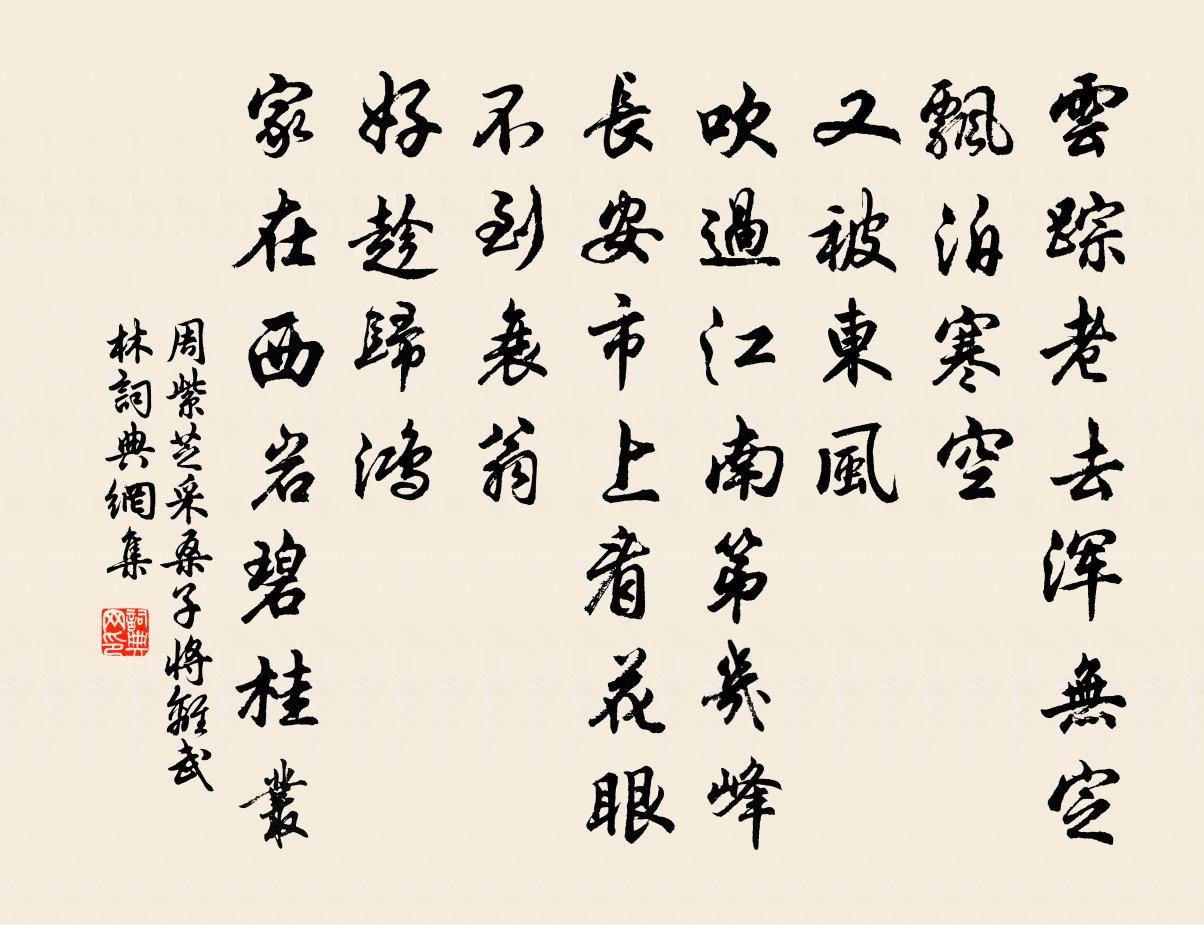 雲踪老去渾無定
飄泊寒空
又被東風
吹過江南第幾峰
長安市上看花眼
不到衰翁
好趁歸鴻
家在西岩碧桂叢
周紫芝采桑子將離武
林詞典網集
詞典
网印